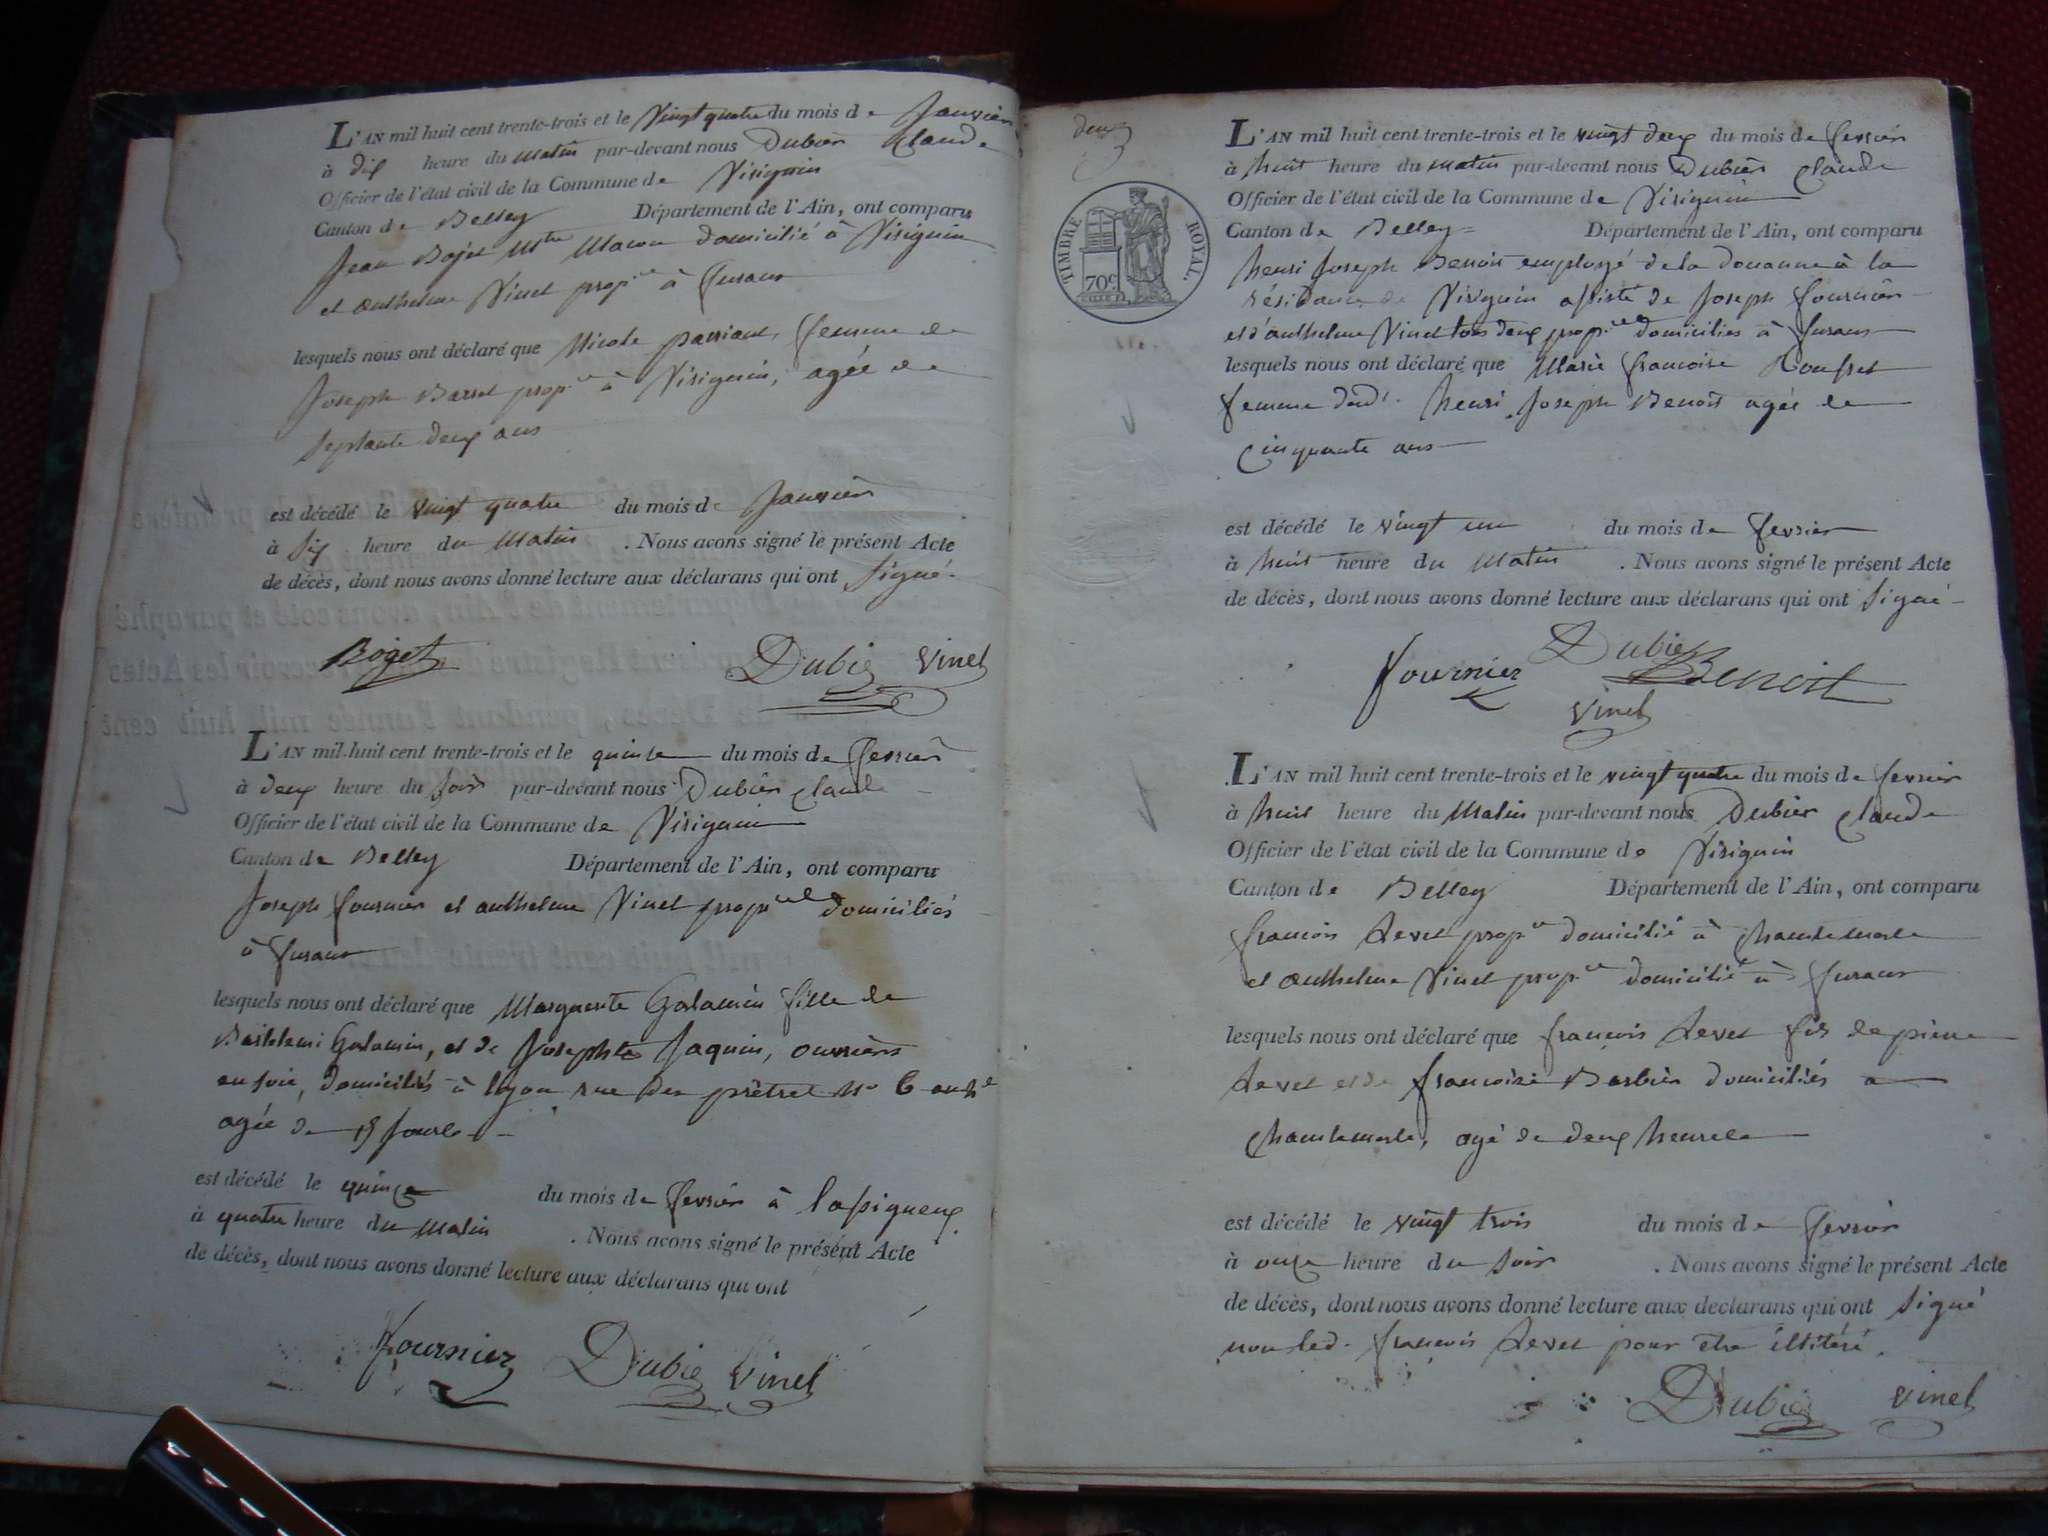 L'AN mil huit cent trente-trois et le vingt quatre du mois de Janvier
à dix heure du matin par-devant nous Dubier Claude
Officier de l'état civil de la Commune de Virignin
Canton de Belley Département de l'Ain, ont comparu
Jean Bojet Mtre Macon domicilié à Virignin
et anthelme Vinet propre à fusans
lesquels nous ont déclaré que Nicole femme de
Joseph Barret propre à Virignin, agée de
septante deux ans
est décédé le vingt quatre du mois de Janvier
à six heure du Matin . Nous avons signé le présent Acte
de décès, dont nous avons donné lecture aux déclarans qui ont signé.
Bojet Dubier Vinet
L'AN mil huit cent trente-trois et le quinze du mois de fevrier
à deux heure du soir par-devant nous Dubier Claude
Officier de l'état civil de la Commune de Virignin
Canton de Belley Département de l'Ain, ont comparu
Joseph fournier et anthelme Vinet propres domiciliés
à fusans
lesquels nous ont déclaré que Marguerite Galamin fille de
Barthelemi Galamin, et de Josephte Jaquin, ouvriers
en soie, domiciliés à lyon rue des prêtres No 6
agée de 15 Jours
est décédé le quinze du mois de fevrier à lassigneux
à quatre heure du Matin . Nous avons signé le présent Acte
de décès, dont nous avons donné lecture aux déclarans qui ont
fournier Dubier Vinet
deux
TIMBRE ROYAL.
70c
L'AN mil huit cent trente-trois et le vingt deux du mois de fevrier
à huit heure du matin par-devant nous Dubier Claude
Officier de l'état civil de la Commune de Virignin
Canton de Belley Département de l'Ain, ont comparu
henri Joseph Benoit employé de la douanne à la
résidance de Virignin assisté de Joseph fournier
et d'anthelme Vinet tous deux propres domiciliés à fusans
lesquels nous ont déclaré que Marie francoise
femme dud. henri Joseph Benoit agée de
Cinquante ans
est décédé le vingt un du mois de fevrier
à huit heure du Matin . Nous avons signé le présent Acte
de décès, dont nous avons donné lecture aux déclarans qui ont signé
Dubier
fournier Benoit
Vinet
L'AN mil huit cent trente-trois et le vingt quatre du mois de fevrier
à huit heure du Matin par-devant nous Dubier Claude
Officier de l'état civil de la Commune de Virignin
Canton de Belley Département de l'Ain, ont comparu
francois Levet propre domicilié à Chantemerle
et anthelme Vinet propre domicilié à fusans
lesquels nous ont déclaré que francois Levet fils de pierre
Levet et de francoise Barbier domiciliés a
Chantemerle, agé de deux heures
est décédé le vingt trois du mois de fevrier
à onze heure du soir . Nous avons signé le présent Acte
de décès, dont nous avons donné lecture aux déclarans qui ont signé
non led. francois Levet pour être illitéré.
Dubier Vinet